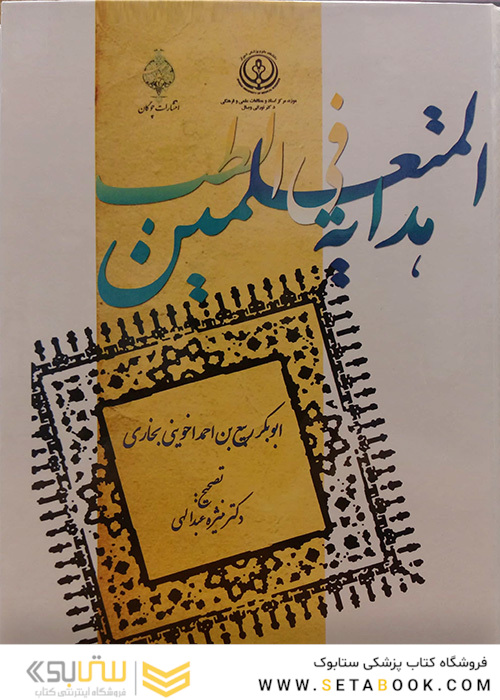 انتشارات چوگان
موزه، مرکز اسناد و مطالعات علمی و فرهنگی
دکتر نورانی وصال
هدایة المتعلمین فی الطب
ابوبکر ربیع بن احمد اخوینی بخاری
تصحیح:
دکتر منیژه عبدالهی
فروشگاه کتاب پزشکی ستابوک
WWW.SETABOOK.COM
ستابوک
فروشگاه اینترنتی کتاب